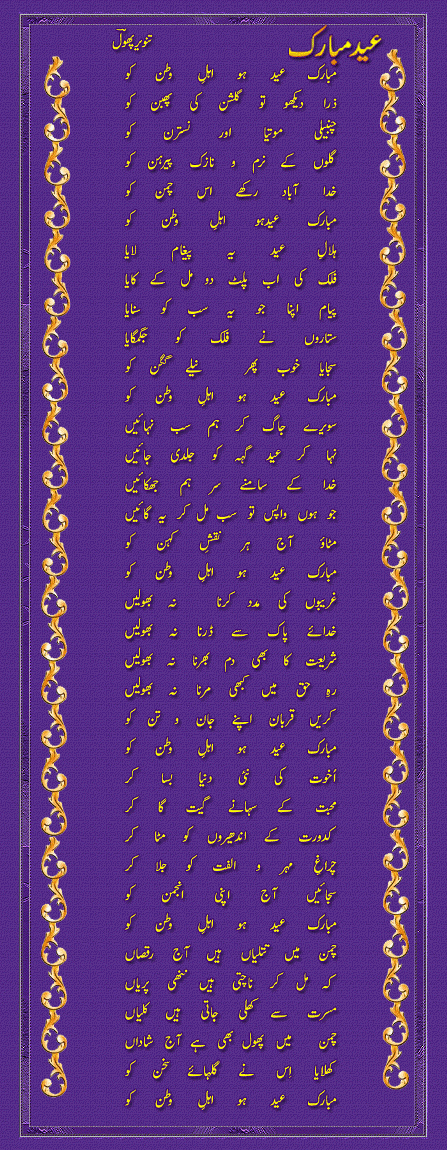 عید مبارک
تنویر پھولؔ
مبارک عید ہو اہلِ وطن کو
ذرا دیکھو تو گلشن کی پھبن کو
چنبیلی موتیا اور نسترن کو
گلوں کے نرم و نازک پیرہن کو
خدا آباد رکھے اس چمن کو
مبارک عیدہو اہلِ وطن کو
ہلالِ عید یہ پیغام لایا
فلک کی اب پلٹ دو مل کے کایا
پیام اپنا جو یہ سب کو سنایا
ستاروں نے فلک کو جگمگایا
سجایا خوب پھر نیلے گگن کو
مبارک عید ہو اہلِ وطن کو
سویرے جاگ کر ہم سب نہائیں
نہا کر عید گہہ کو جلدی جائیں
خدا کے سامنے سر ہم جھکائیں
جو ہوں واپس تو سب مل کر یہ گائیں
مٹاؤ آج ہر نقشِ کہن کو
مبارک عید ہو اہلِ وطن کو
غریبوں کی مدد کرنا نہ بھولیں
خدائے پاک سے ڈرنا نہ بھولیں
شریعت کا بھی دم بھرنا نہ بھولیں
رہِ حق میں کبھی مرنا نہ بھولیں
کریں قربان اپنے جان و تن کو
مبارک عید ہو اہلِ وطن کو
اخوت کی نئی دنیا بسا کر
محبت کے سہانے گیت گا کر
کدورت کے اندھیروں کو مٹا کر
چراغِ مہر و الفت کو جلا کر
سجائیں آج اپنی انجمن کو
مبارک عید ہو اہلِ وطن کو
چمن میں تتلیاں ہیں آج رقصاں
کہ مل کر ناچتی ہیں ننھی پریاں
مسرت سے کھلی جاتی ہیں کلیاں
چمن میں پھول بھی ہے آج شاداں
کھلایا اس نے گلہائے سخن کو
مبارک عید ہو اہلِ وطن کو